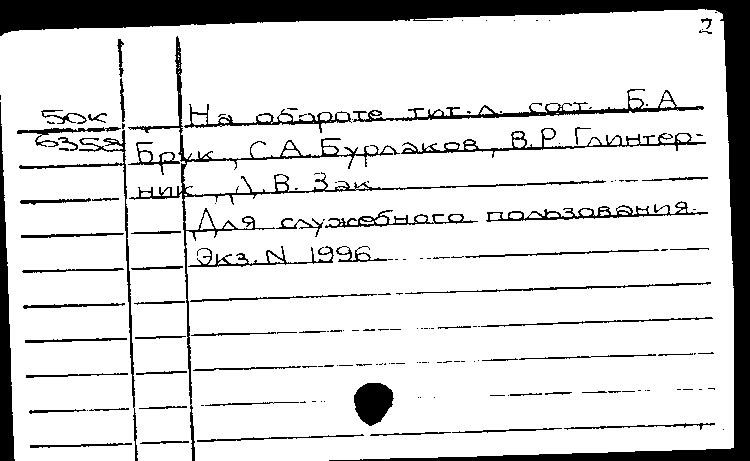 2
50к На обороте тит.л. сост. Б.А
6358 Брук, С.А. Бурлаков, В.Р. Глинтер-
ник, Д.В. Зак
Для служебного пользования.
Экз.N 1996